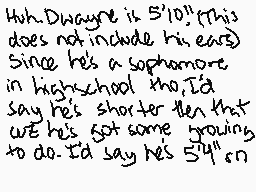 Huh. Dwayne is 5'10!! (This
does not include his ears)
Since he's a sophomore
in highschool tho, I'd
say he's shorter then that
cuz he's got some growing
to do. I'd say he's 5'4" rn